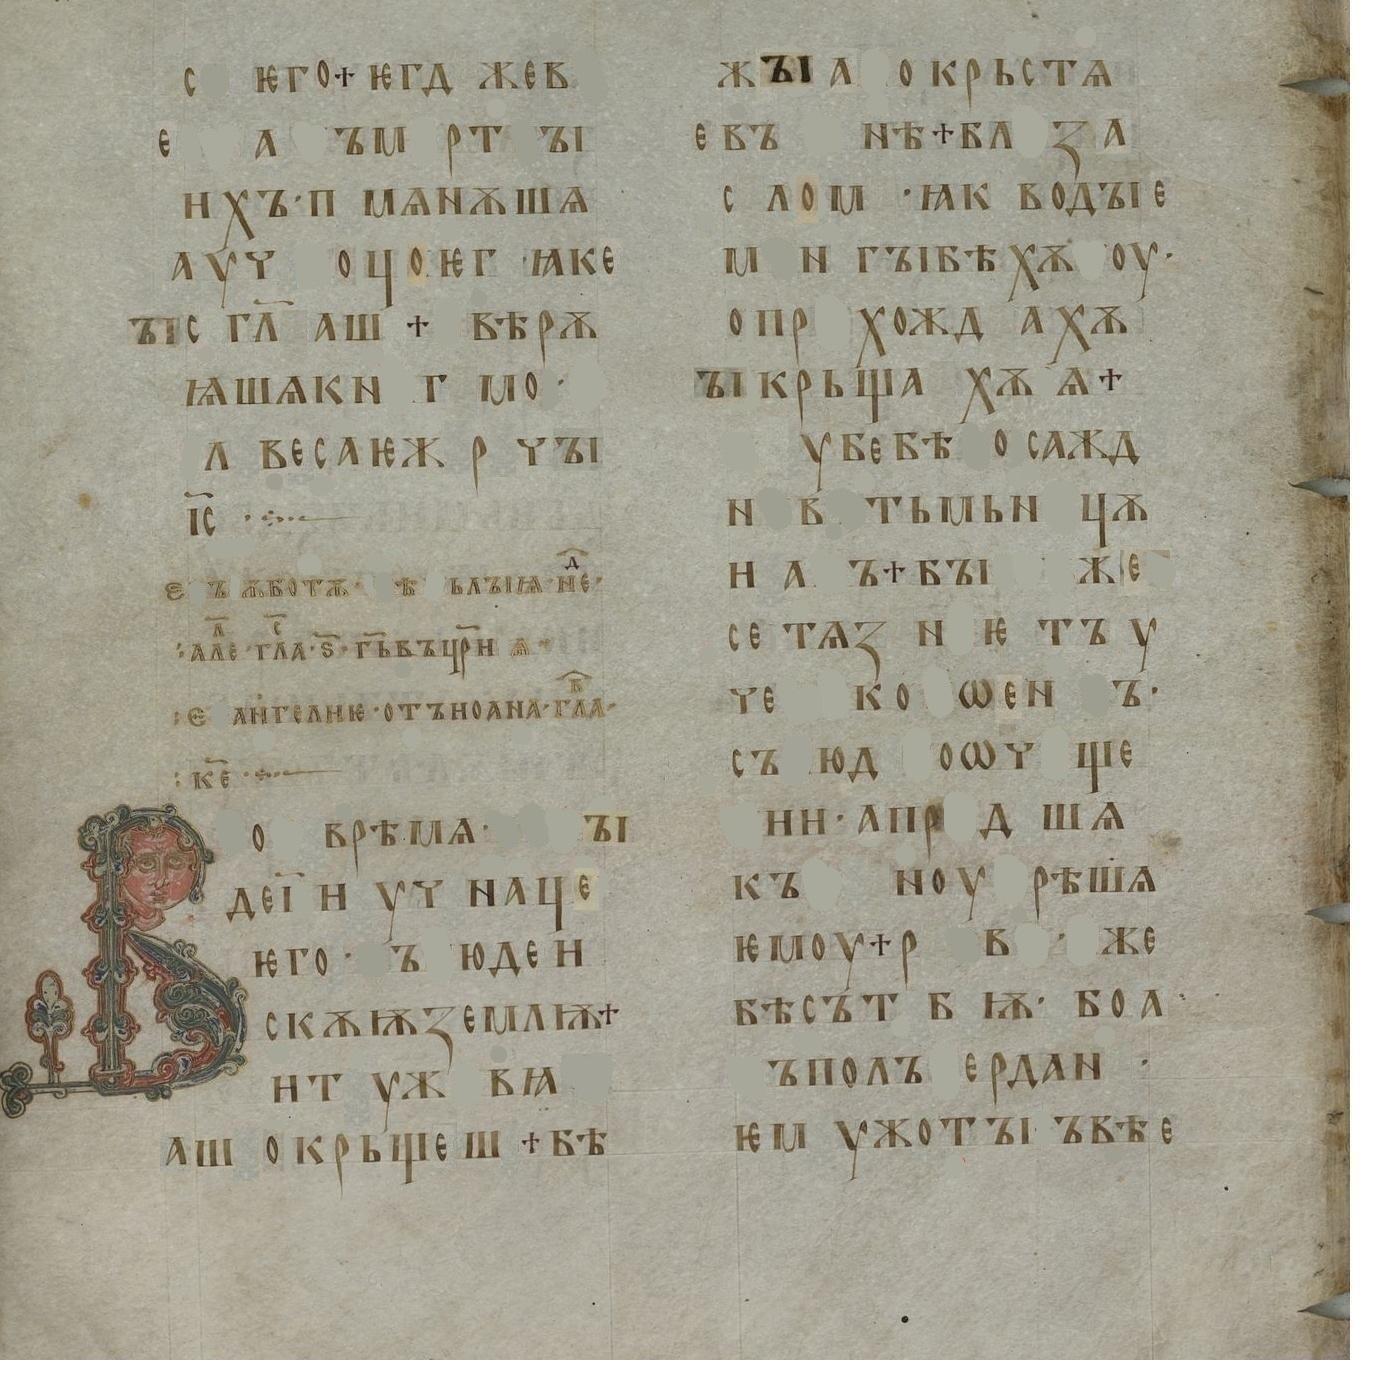 с ѥго+ѥгд жев
е а ъм рт ъі
нхъ·п мѧнѫшѧ
ауү оцоѥг ꙗке
ъіс гл̄ аш + вѣрѫ
ꙗшѧкн г мо·
л весаѥж р үъі
і҃с
е ъ ѫботѫ· ѣ ьлъіꙗ·не·
:але·гла·ѕ·гь҃въцр҃н ѧ
:е ангелиѥ·отъиоана·гла·
:ке҃·
о врѣмѧ· ъі
деі҃ н уү наце
ѥго· ъ юден
скѫѭземлѭ+
нт уж вꙗ
аш окрьщеш +бѣ
жъі а окрьстѧ
евъ нѣ+бл за
с лом ·ꙗк водъіе
м н гъібѣхѫ оу·
опр хожд ахѫ
ъікрьща хѫ ѧ+
убебѣ осажд
н в тьмьн цѫ
н а ъ+бъі же
сетѧз н ѥ тъ у
үе ко ѡен ъ·
съ юд оѡү ще
нн·апр д шѧ
къ ноу рѣшѧ
ѥмоу+р в · же
бѣсът б ѭ· боа
ъполъ ердан ·
ѥм ужотъі ъвѣе